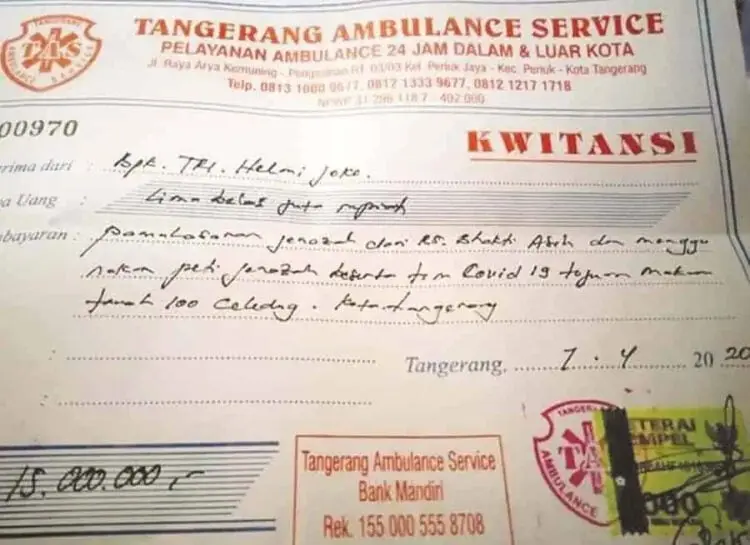 TANGERANG
TAS
AMBULANCE SERVICE
TANGERANG AMBULANCE SERVICE
PELAYANAN AMBULANCE 24 JAM DALAM & LUAR KOTA
Jl. Raya Arya Kemuning - RT 03/03 Kel. Periuk Jaya - Kec. Periuk - Kota Tangerang
Telp. 0813 1000 9677, 0812 1333 9677, 0812 1217 1718
NPWP
00970
KWITANSI
rima dari : Bpk. TRI. Helmi Joko.
a Uang : Lima belas juta rupiah
bayaran : pemulasaran jenazah dari RS. Bhakti Asih dan menggu
nakan peti jenazah beserta tim Covid 19 tujuan makam
tanah 100 Celedug. Kota tangerang
Tangerang, 7 - 4 2020
15.000.000,-
Tangerang Ambulance Service
Bank Mandiri
Rek. 155 000 555 8708
TANGERA
TA
AMBULANCE
ETERAI
EMPEL
000